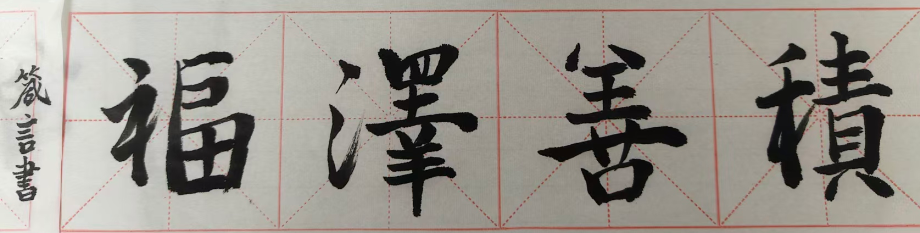 積善澤福
箴言書